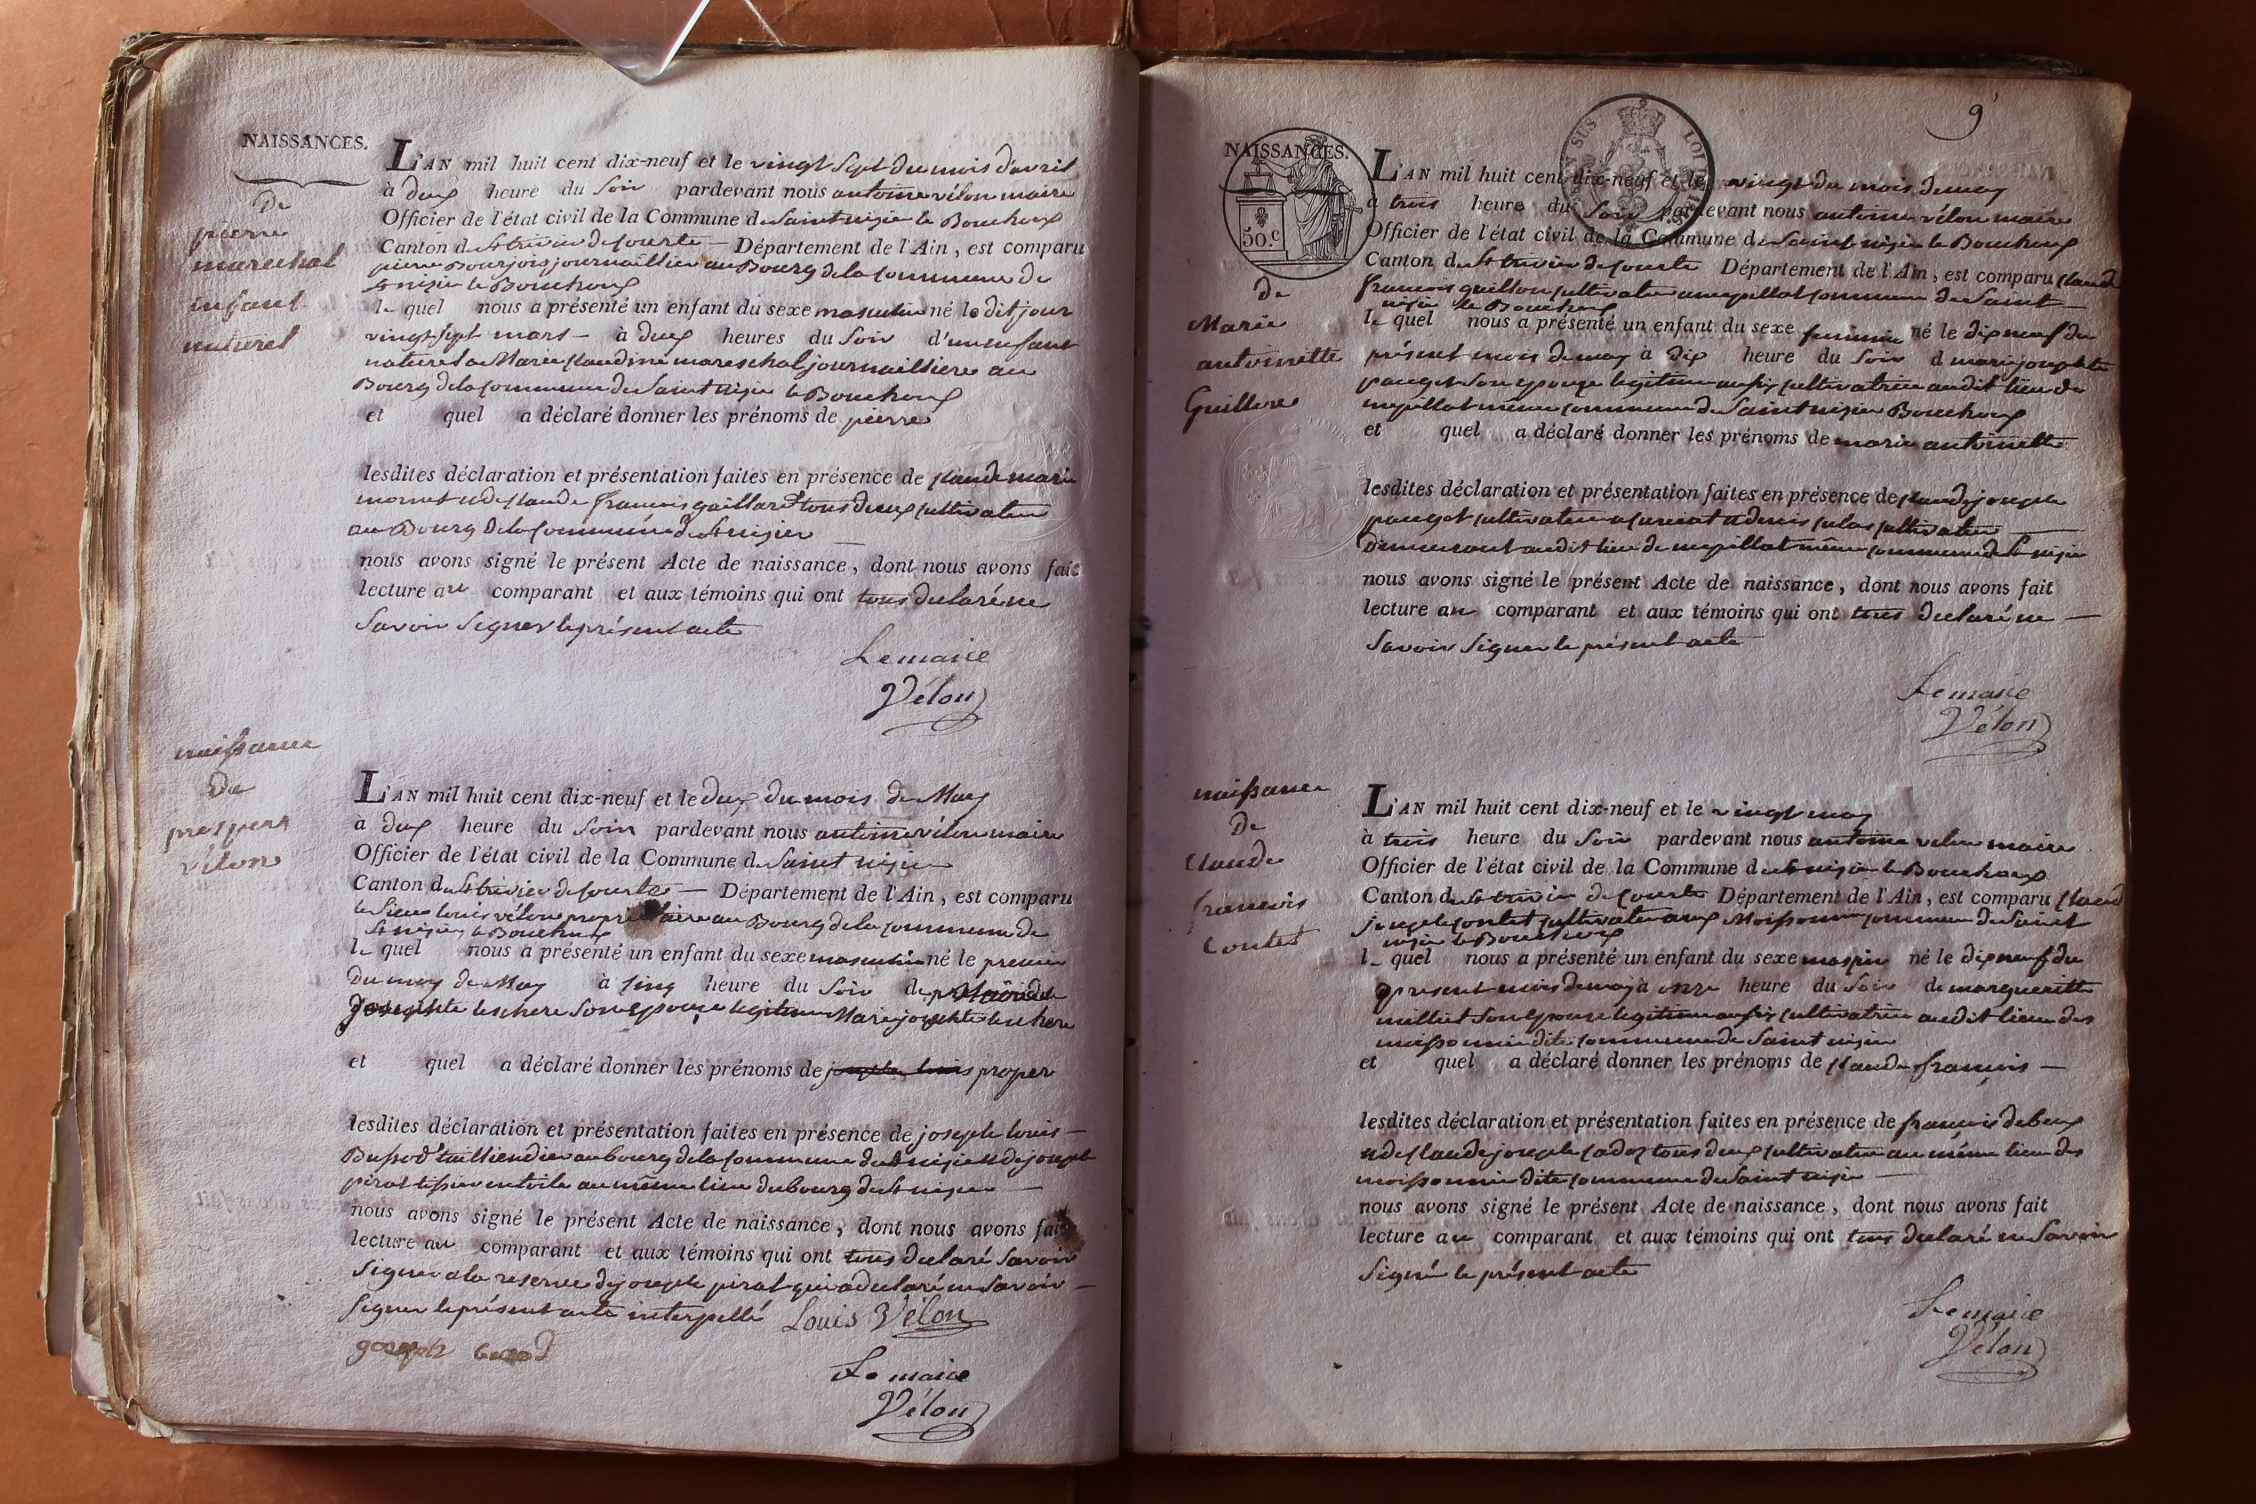 NAISSANCES.
De
pierre
marechal
enfant
naturel
L'AN mil huit cent dix-neuf et le vingt sept du mois d'avril
à deux heure du Soir pardevant nous antoine vélon maire
Officier de l'état civil de la Commune de Saint nizier le Bouchoux
Canton de St trivier de Courte — Département de l'Ain, est comparu
pierre Bourjois journaillier au Bourg de la commune de
St nizier le Bouchoux
le quel nous a présenté un enfant du sexe masculin né le dit jour
vingt Sept mars — à deux heures du Soir d'un enfant
naturel de Marie Claudine mareschal journailliere au
Bourg de la commune de Saint nizier le Bouchoux
et quel a déclaré donner les prénoms de pierre
lesdites déclaration et présentation faites en présence de Claude marie
et de Claude françois gaillard tous deux cultivateur
au Bourg de la Commune de St nizier —
nous avons signé le présent Acte de naissance, dont nous avons fait
lecture au comparant et aux témoins qui ont tous declaré ne
Savoir Signer le présent acte
Le maire
Vélon
naissance
De
prospert
vélon
L'AN mil huit cent dix-neuf et le deux du mois de May
a deux heure du Soir pardevant nous antoine vélon maire
Officier de l'état civil de la Commune de Saint nizier
Canton de St trivier de Courtes — Département de l'Ain, est comparu
le Sieur louis vélon proprietaire au Bourg de la commune de
St nizier le Bouchoux
le quel nous a présenté un enfant du sexe masculin né le premier
du moy de May à cinq heure du Soir de
Josephte leschere Son Epouse legitime Marie josephte leschere
et quel a déclaré donner les prénoms de joseph louis proper
lesdites déclaration et présentation faites en présence de joseph louis —
au bourg de la Commune de St nizier et de joseph
pirat tissier en toile au même lieu du bourg de St nizier —
nous avons signé le présent Acte de naissance, dont nous avons fait
lecture au comparant et aux témoins qui ont tous declaré Savoir
Signer a la reserve de joseph pirat qui a declaré ne Savoir —
Signer le présent acte interpellé Louis Vélon
joseph
Le maire
Vélon
9
NAISSANCES.
50.c
De
Marie
antoinette
Guillon
L'AN mil huit cent dix-neuf et le vingt du mois de may
à trois heure du Soir pardevant nous antoine vélon maire
Officier de l'état civil de la Commune de Saint nizier le Bouchoux
Canton de St trivier de Courte Département de l'Ain, est comparu Claude
françois guillon cultivateur a commune de Saint
nizier le Bouchoux
le quel nous a présenté un enfant du sexe feminin né le dix neuf du
présent mois de may à dix heure du Soir de marie josephte
pauget Son epouse legitime aussi cultivatrice au dit lieu de
même commune de Saint nizier Bouchoux
et quel a déclaré donner les prénoms de marie antoinette
lesdites déclaration et présentation faites en présence de Claude joseph
pauget cultivateur a et denis cultivateur
demeurant au dit lieu de même commune de St nizier
nous avons signé le présent Acte de naissance, dont nous avons fait
lecture au comparant et aux témoins qui ont tous declaré ne —
Savoir Signer le présent acte
Le maire
Vélon
naissance
De
Claude
francois
Contet
L'AN mil huit cent dix-neuf et le vingt may
à trois heure du Soir pardevant nous antoine velon maire
Officier de l'état civil de la Commune de St nizier le Bouchoux
Canton de St trivier de Courte Département de l'Ain, est comparu Claude
joseph contet cultivateur aux Moissonnier commune de Saint
nizier le Bouchoux
le quel nous a présenté un enfant du sexe masculin né le dix neuf du
present mois de may à onze heure du Soir de marguerite
millet Son Epouse legitime aussi cultivatrice au dit lieu des
moissonnier dite commune de Saint nizier
et quel a déclaré donner les prénoms de Claude françois —
lesdites déclaration et présentation faites en présence de françois debeux
et de Claude joseph cadoz tous deux cultivateur au même lieu des
moissonnier dite commune de Saint nizier —
nous avons signé le présent Acte de naissance, dont nous avons fait
lecture au comparant et aux témoins qui ont tous declaré ne Savoir
Signé le présent acte
Le maire
Vélon